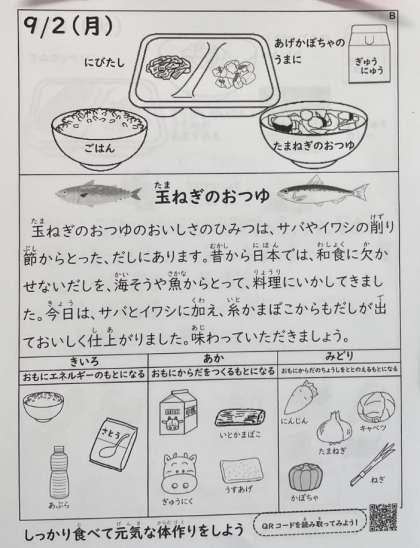 B
9/2(月)
にびたし
あげかぼちゃの
うまに
ぎゅう
にゅう
ごはん
たまねぎのおつゆ
玉ねぎのおつゆ
玉ねぎのおつゆのおいしさのひみつは、サバやイワシの削り
節からとった、だしにあります。昔から日本では、和食に欠か
せないだしを、海そうや魚からとって、料理にいかしてきまし
た。今日は、サバとイワシに加え、糸かまぼこからもだしが出
ておいしく仕上がりました。味わっていただきましょう。
きいろ
おもにエネルギーのもとになる
さとう
あぶら
あか
おもにからだをつくるもとになる
いとかまぼこ
ぎゅうにく
うすあげ
みどり
おもにからだのちょうしをととのえるもとになる
にんじん
たまねぎ
キャベツ
かぼちゃ
ねぎ
しっかり食べて元気な体作りをしよう
QRコードを読み取ってみよう!